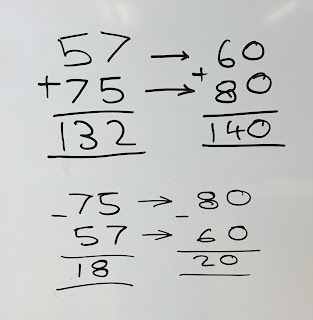 57 → 60
+75 → +80
132 140
-75 → -80
57 → 60
18 20